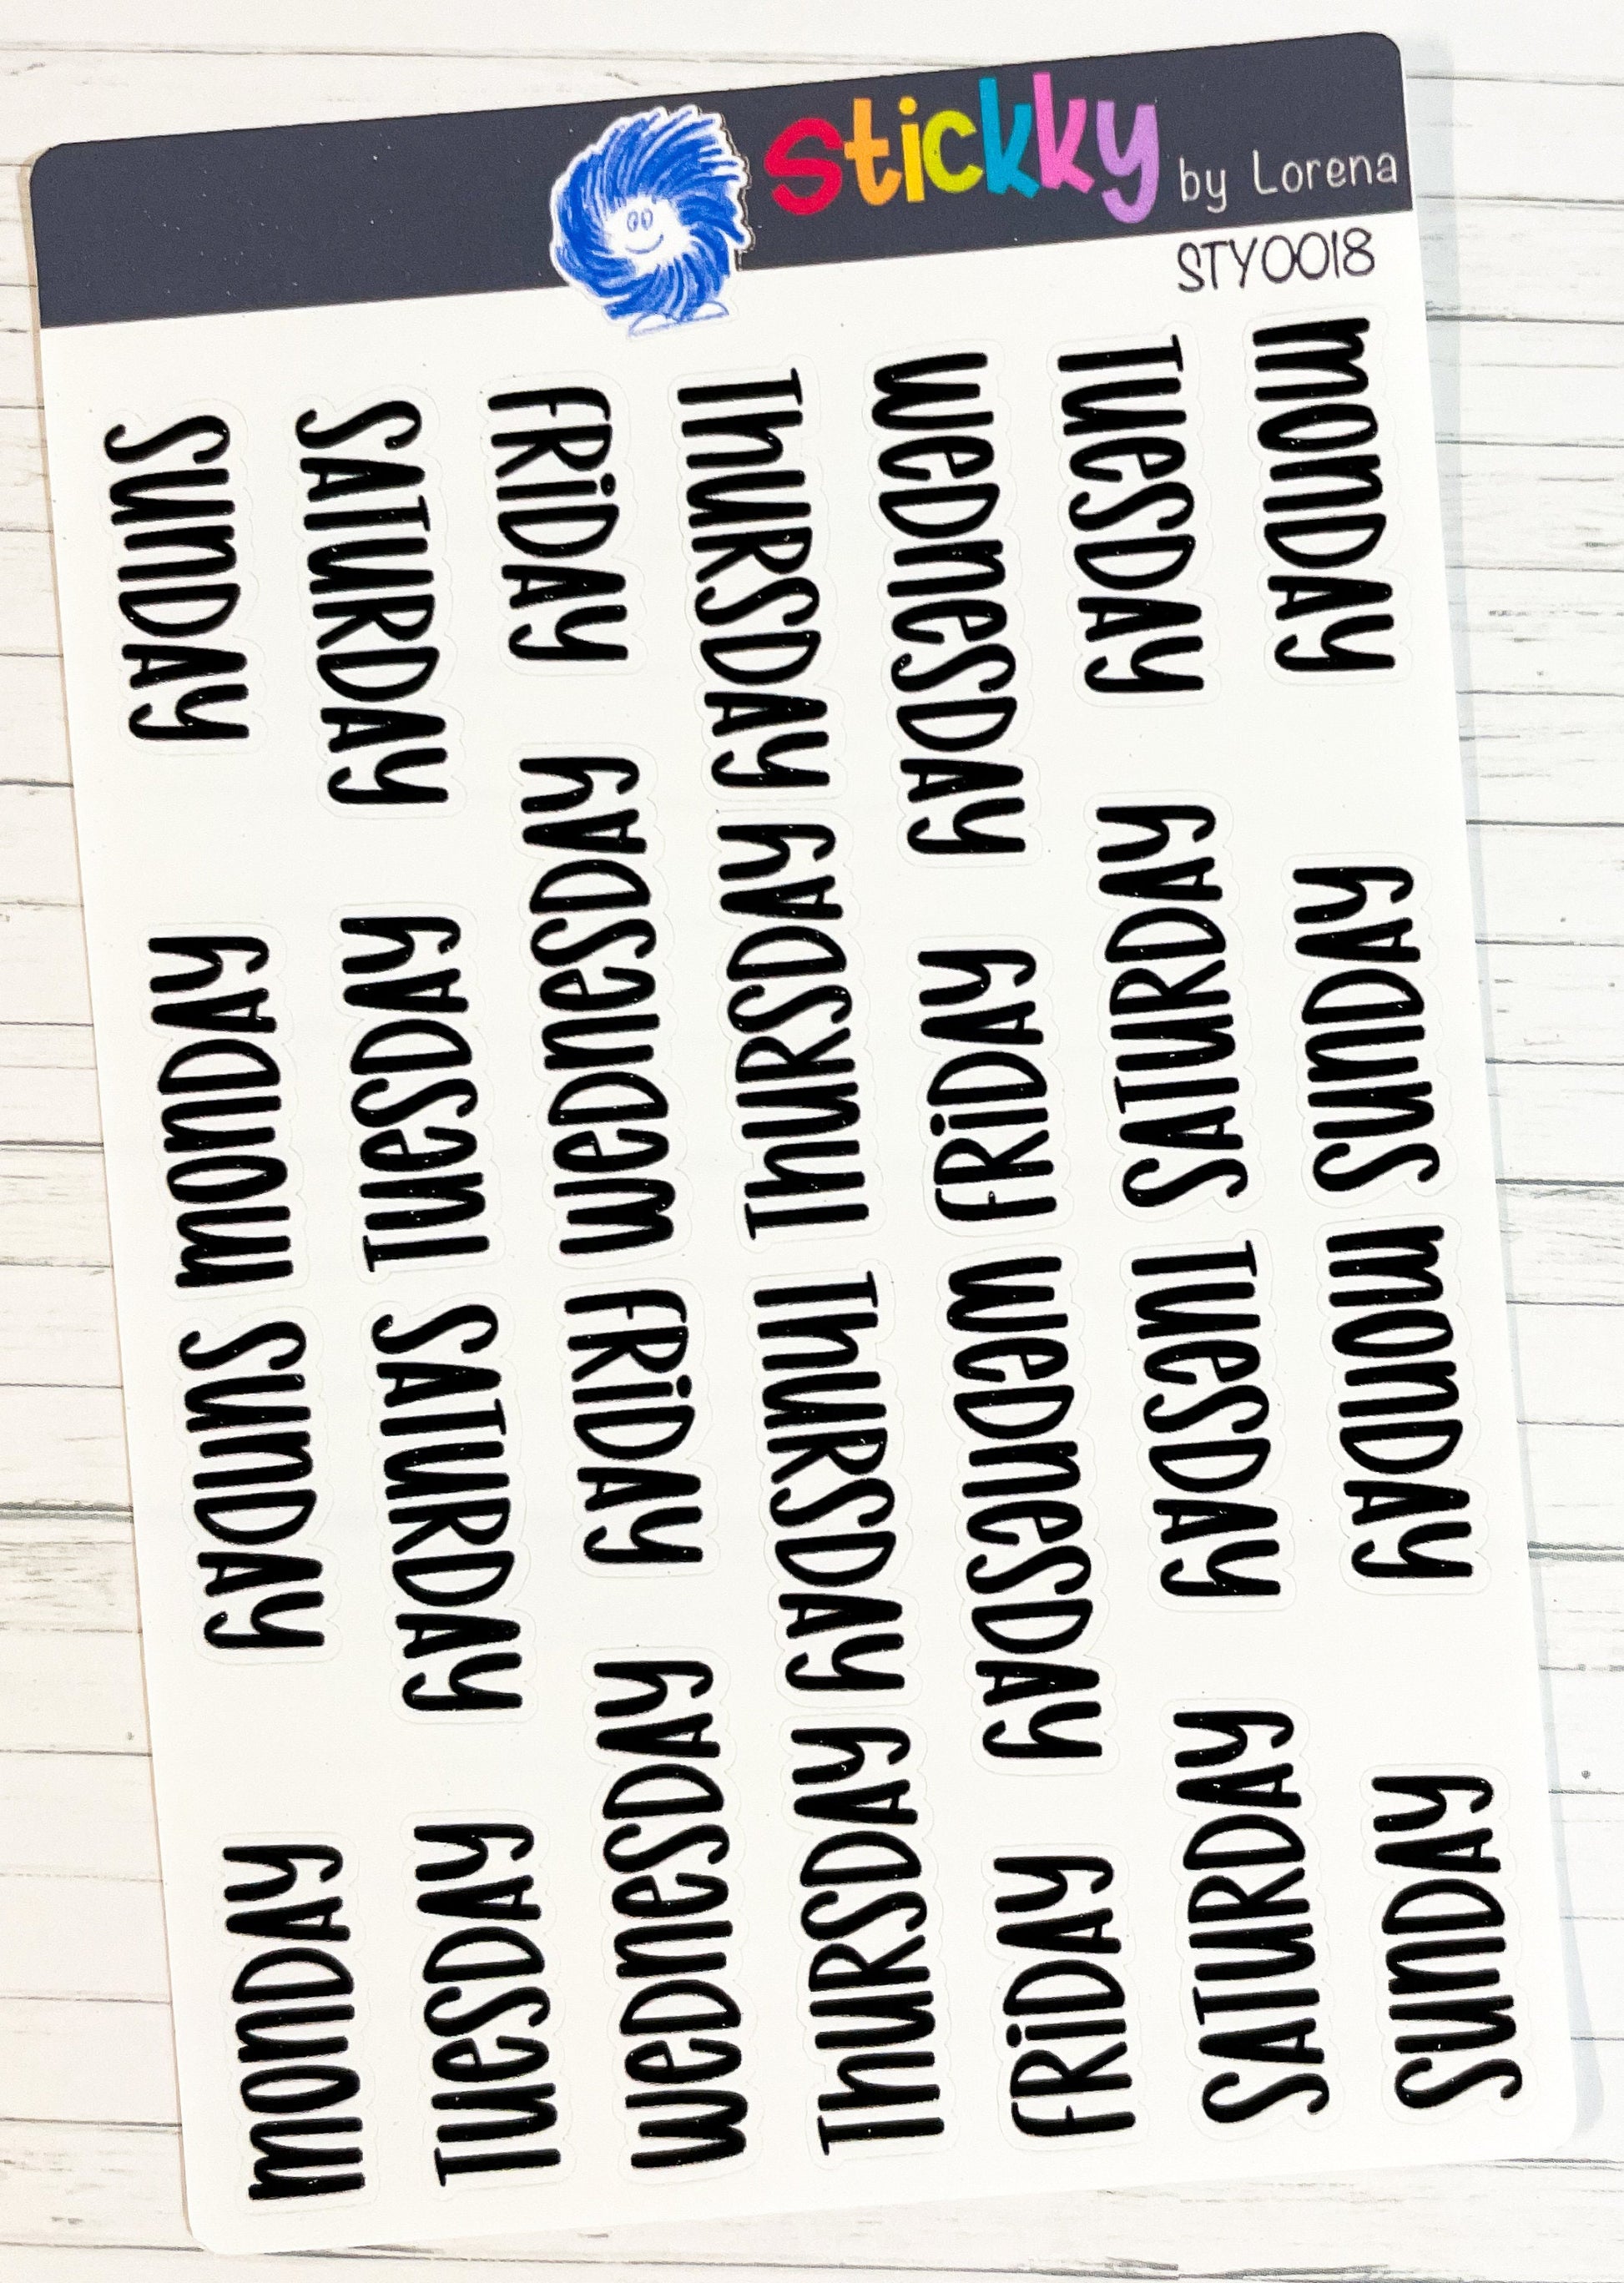 stickky by Lorena
STY0018
MONDAY
TUESDAY
WEDNESDAY
THURSDAY
FRIDAY
SATURDAY
SUNDAY
MONDAY
TUESDAY
WEDNESDAY
THURSDAY
FRIDAY
SATURDAY
SUNDAY
MONDAY
TUESDAY
WEDNESDAY
THURSDAY
FRIDAY
SATURDAY
SUNDAY
MONDAY
TUESDAY
WEDNESDAY
THURSDAY
FRIDAY
SATURDAY
SUNDAY